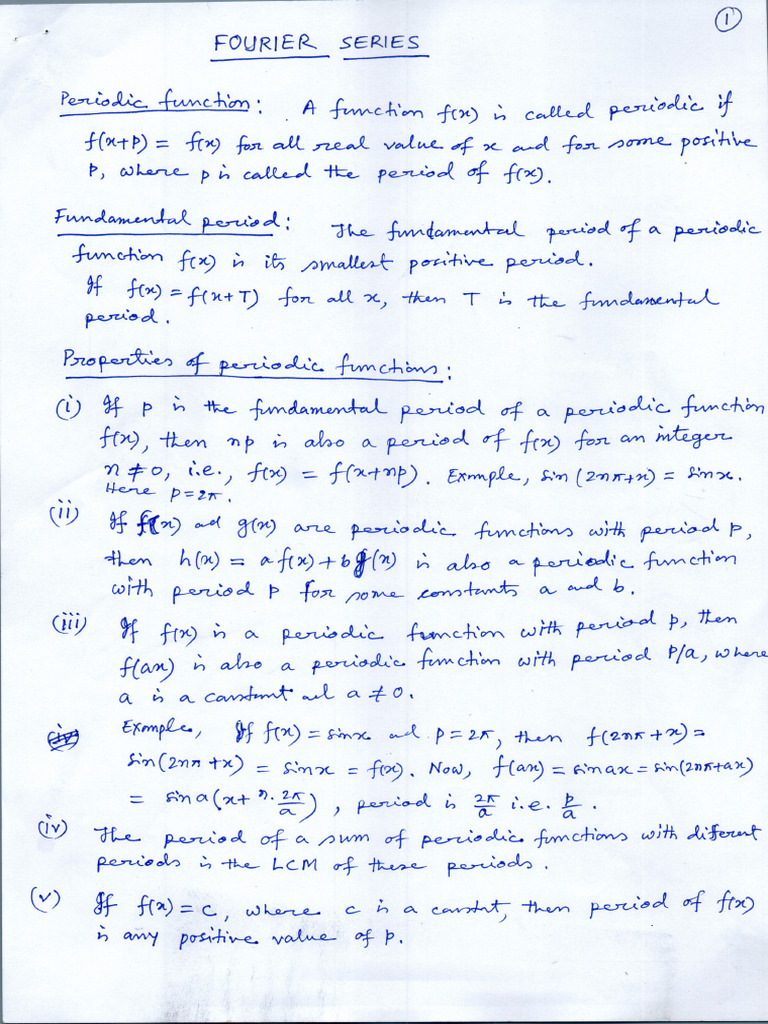 1
FOURIER SERIES
Periodic function: A function f(x) is called periodic if
f(x+p) = f(x) for all real value of x and for some positive
p, where p is called the period of f(x).
Fundamental period: The fundamental period of a periodic
function f(x) is its smallest positive period.
If f(x) = f(x+T) for all x, then T is the fundamental
period.
Properties of periodic functions:
(i) If p is the fundamental period of a periodic function
f(x), then np is also a period of f(x) for an integer
n ≠ 0, i.e., f(x) = f(x+np). Example, sin (2nπ+x) = sinx.
Here p=2π.
(ii) If f(x) ad g(x) are periodic functions with period p,
then h(x) = a f(x) + b g(x) is also a periodic function
with period p for some constants a and b.
(iii) If f(x) is a periodic function with period p, then
f(ax) is also a periodic function with period P/a, where
a is a constant ad a ≠ 0.
Example, If f(x) = sinx ad p = 2π, then f(2nπ+x) =
sin(2nπ+x) = sinx = f(x). Now, f(ax) = sinax = sin(2nπ+ax)
= sin a(x + n. 2π/a), period is 2π/a i.e. p/a.
(iv) The period of a sum of periodic functions with different
periods is the LCM of these periods.
(v) If f(x) = c, where c is a constnt, then period of f(x)
is any positive value of p.